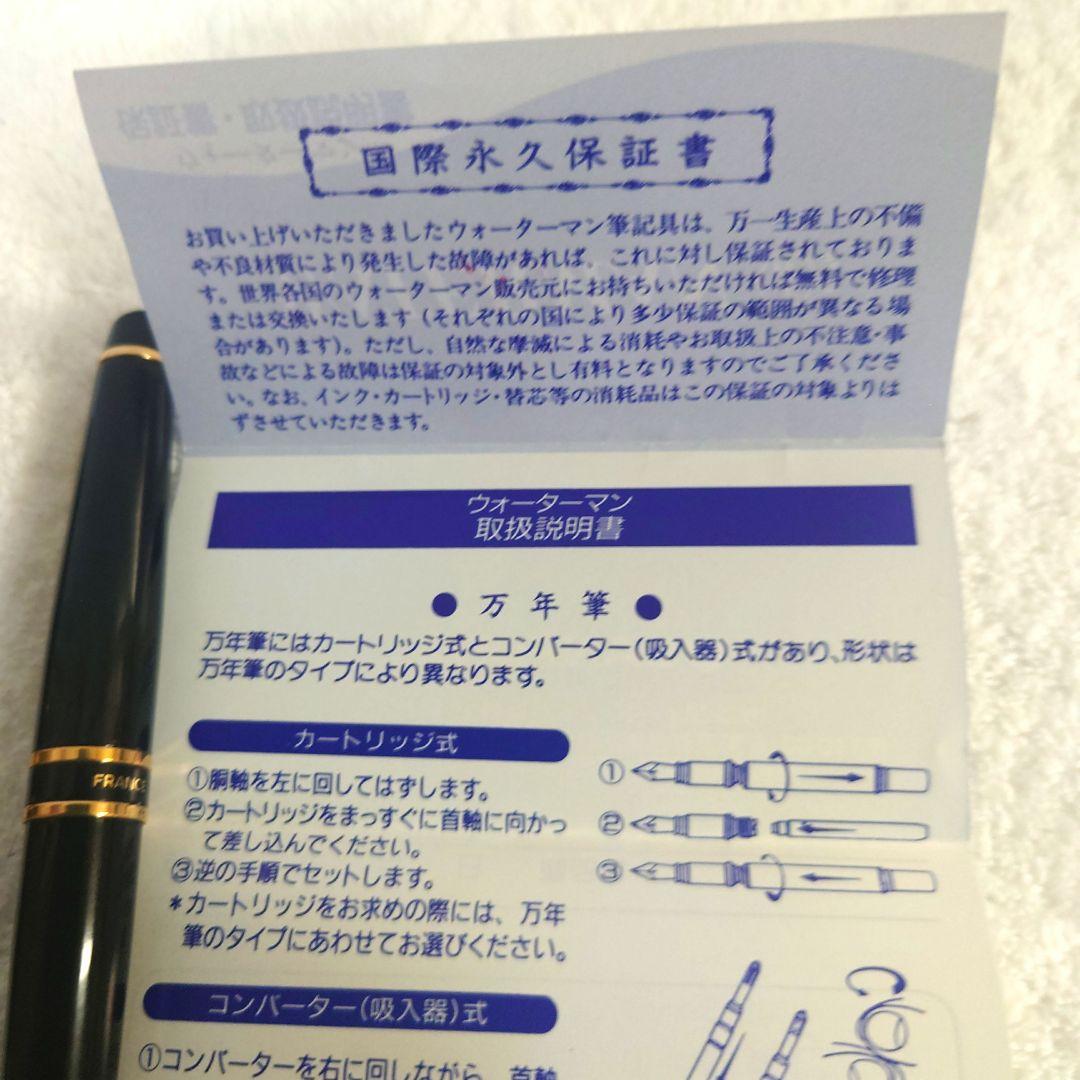 国際永久保証書
お買い上げいただきましたウォーターマン筆記具は、万一生産上の不備
や不良材質により発生した故障があれば、これに対し保証されておりま
す。世界各国のウォーターマン販売元にお持ちいただければ無料で修理
または交換いたします(それぞれの国により多少保証の範囲が異なる場
合があります)。ただし、自然な摩滅による消耗やお取扱上の不注意・事
故などによる故障は保証の対象外とし有料となりますのでご了承くださ
い。なお、インク・カートリッジ・替芯等の消耗品はこの保証の対象よりは
ずさせていただきます。
ウォーターマン
取扱説明書
● 万年筆 ●
万年筆にはカートリッジ式とコンバーター(吸入器)式があり、形状は
万年筆のタイプにより異なります。
カートリッジ式
①胴軸を左に回してはずします。
②カートリッジをまっすぐに首軸に向かっ
て差し込んでください。
③逆の手順でセットします。
*カートリッジをお求めの際には、万年
筆のタイプにあわせてお選びください。
①
②
③
コンバーター(吸入器)式
①コンバーターを右に回しながら、首軸
FRANCE